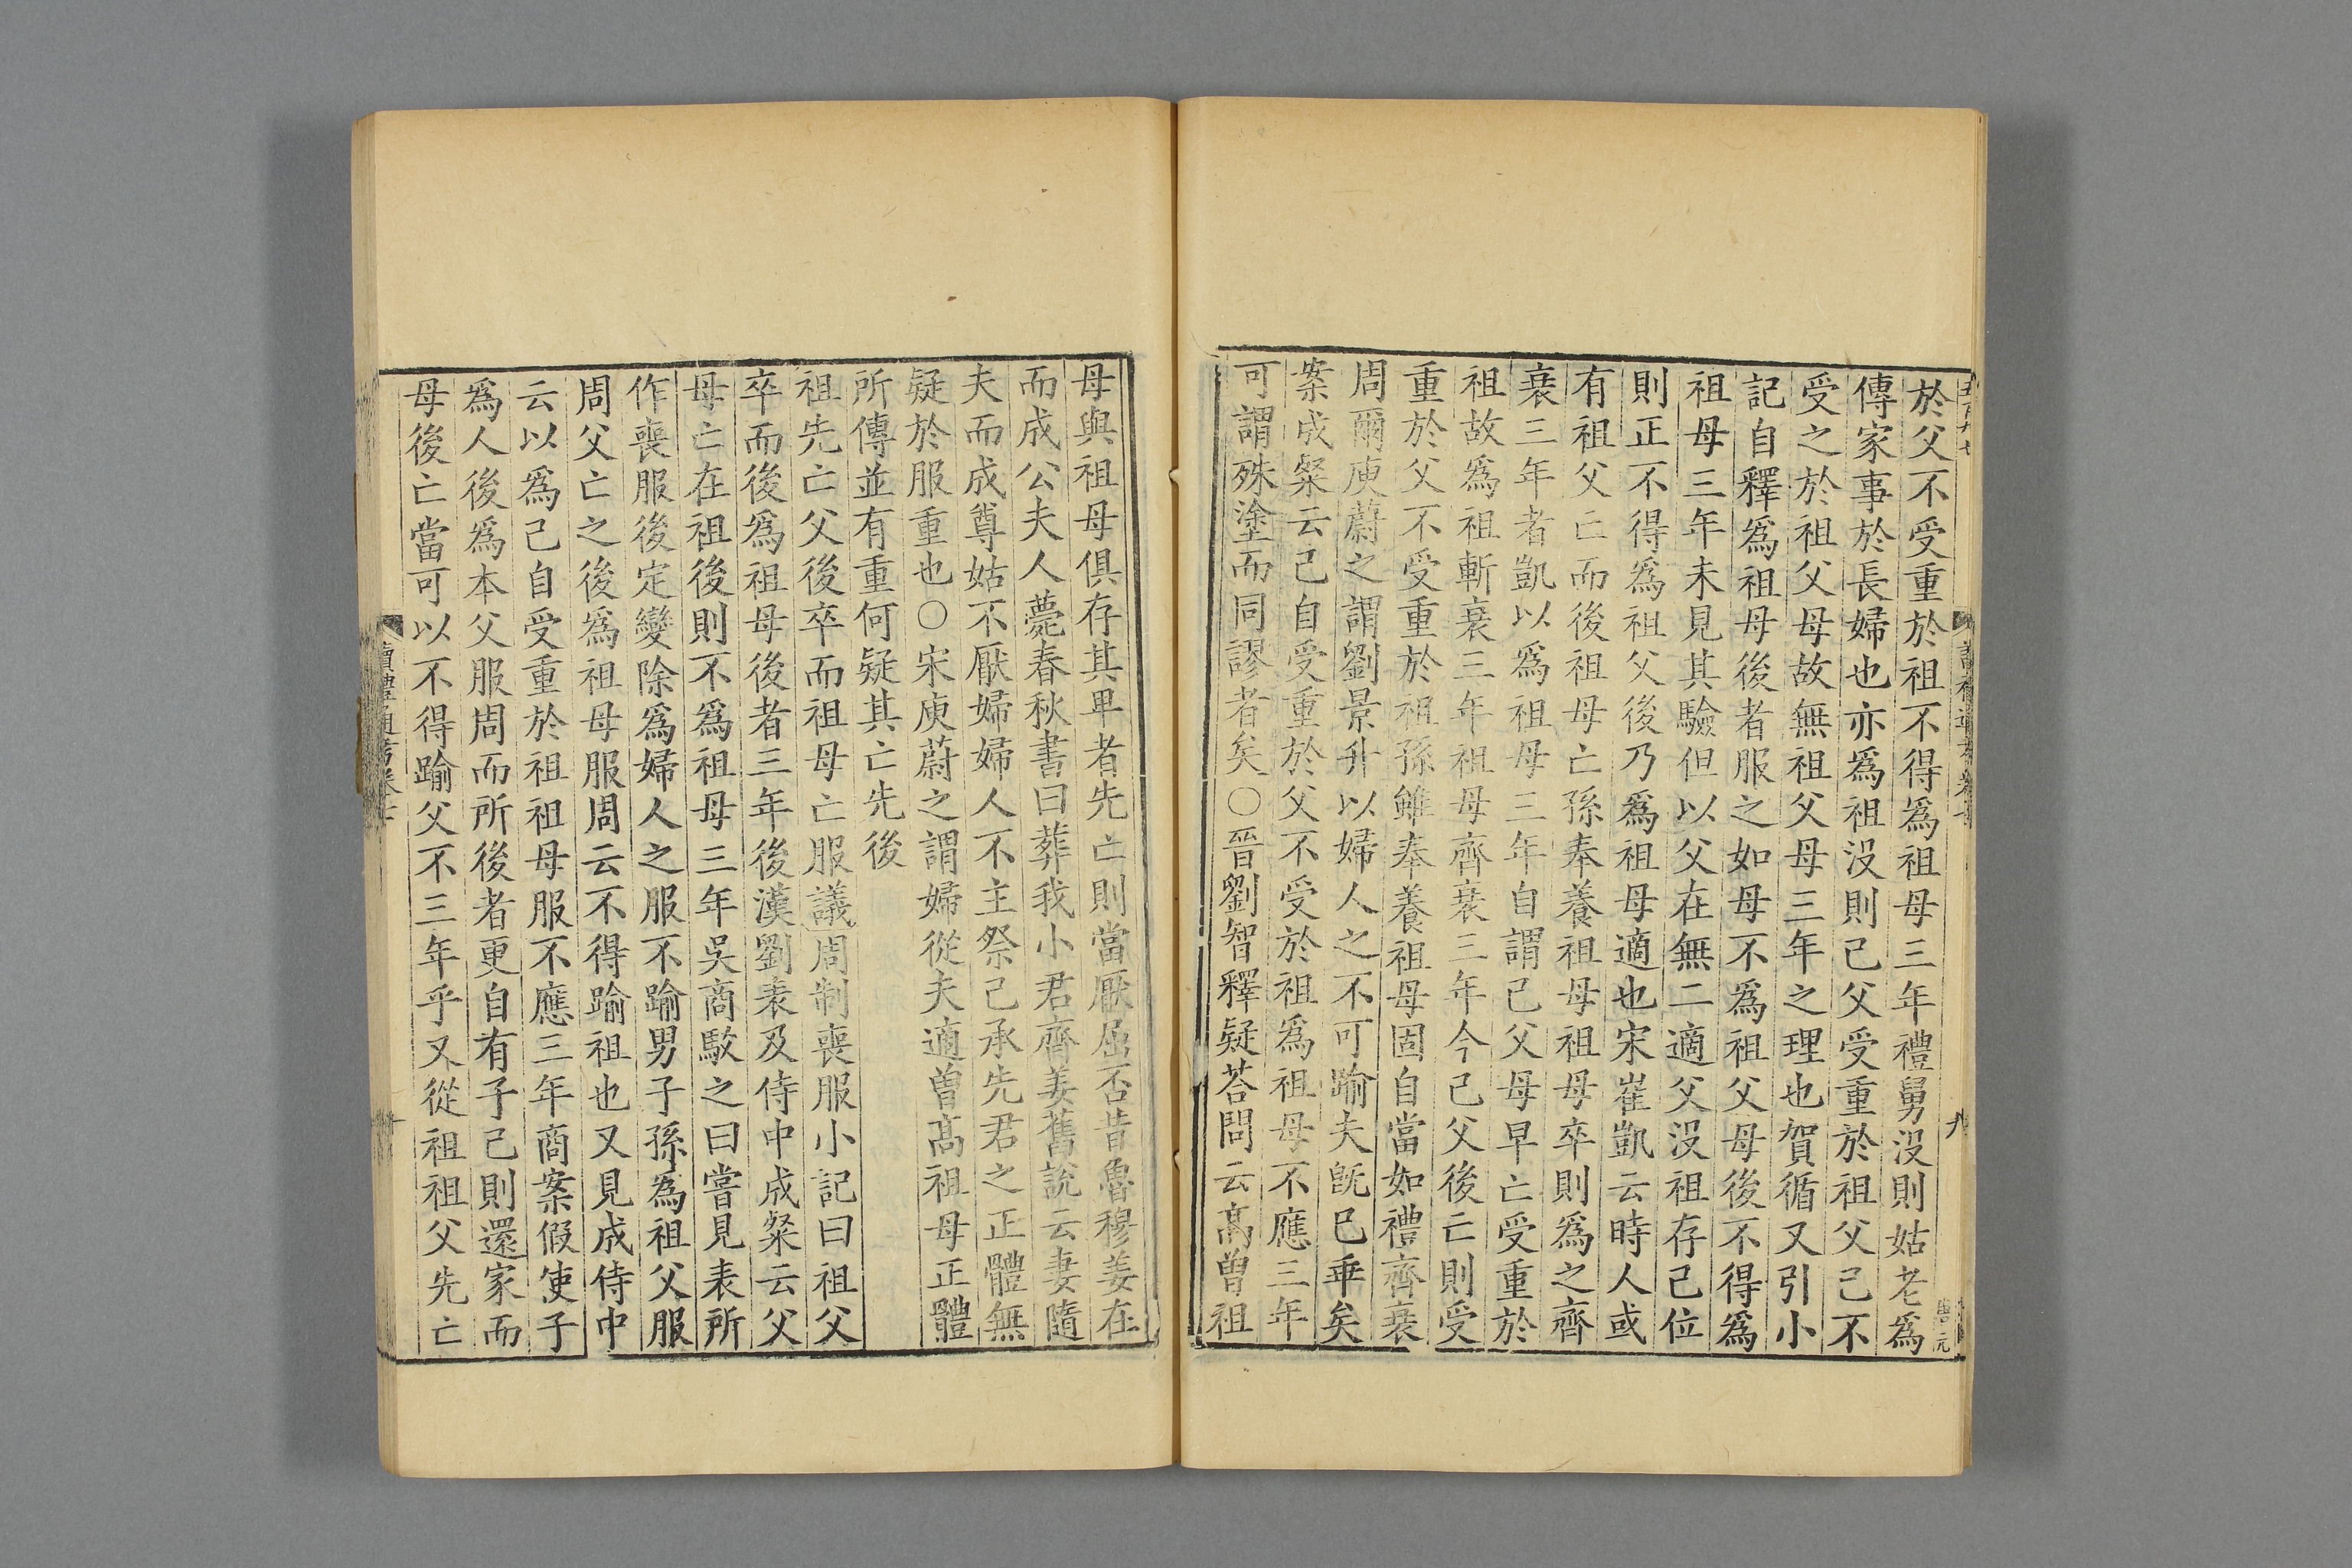 於父不受重於祖不得爲祖母三年禮舅没則姑老爲
傳家事於長婦也亦爲祖没則己父受重於祖父己不
受之於祖父母故無祖父母三年之理也賀循又引小
記自釋爲祖母後者服之如母不爲祖父母後不得爲
祖母三年未見其驗但以父在無二適父没祖存己位
則正不得爲祖父後乃爲祖母適也宋崔凱云時人或
有祖父亡而後祖母亡孫奉養祖母祖母卒則爲之齊
衰三年者凱以爲祖母三年自謂己父母早亡受重於
祖故爲祖斬衰三年祖母齊衰三年今己父後亡則受
重於父不受重於祖孫雖奉養祖母固自當如禮齊衰
周爾庾蔚之謂劉景升以婦人之不可踰夫旣已乖矣
案成粲云己自受重於父不受於祖爲祖母不應三年
可謂殊塗而同謬者矣○晉劉智釋疑荅問云高曾祖
母與祖母俱存其卑者先亡則當厭屈否昔魯穆姜在
而成公夫人薨春秋書曰葬我小君齊姜舊說云妻隨
夫而成尊姑不厭婦婦人不主祭己承先君之正體無
疑於服重也○宋庾蔚之謂婦從夫適曾高祖母正體
所傳並有重何疑其亡先後
祖先亡父後卒而祖母亡服議周制喪服小記曰祖父
卒而後爲祖母後者三年後漢劉表及侍中成粲云父
母亡在祖後則不爲祖母三年吳商駮之曰嘗見表所
作喪服後定變除爲婦人之服不踰男子孫爲祖父服
周父亡之後爲祖母服周云不得踰祖也又見成侍中
云以爲己自受重於祖祖母服不應三年商案假使子
爲人後爲本父服周而所後者更自有子己則還家而
母後亡當可以不得踰父不三年乎又從祖祖父先亡
讀禮通考卷十